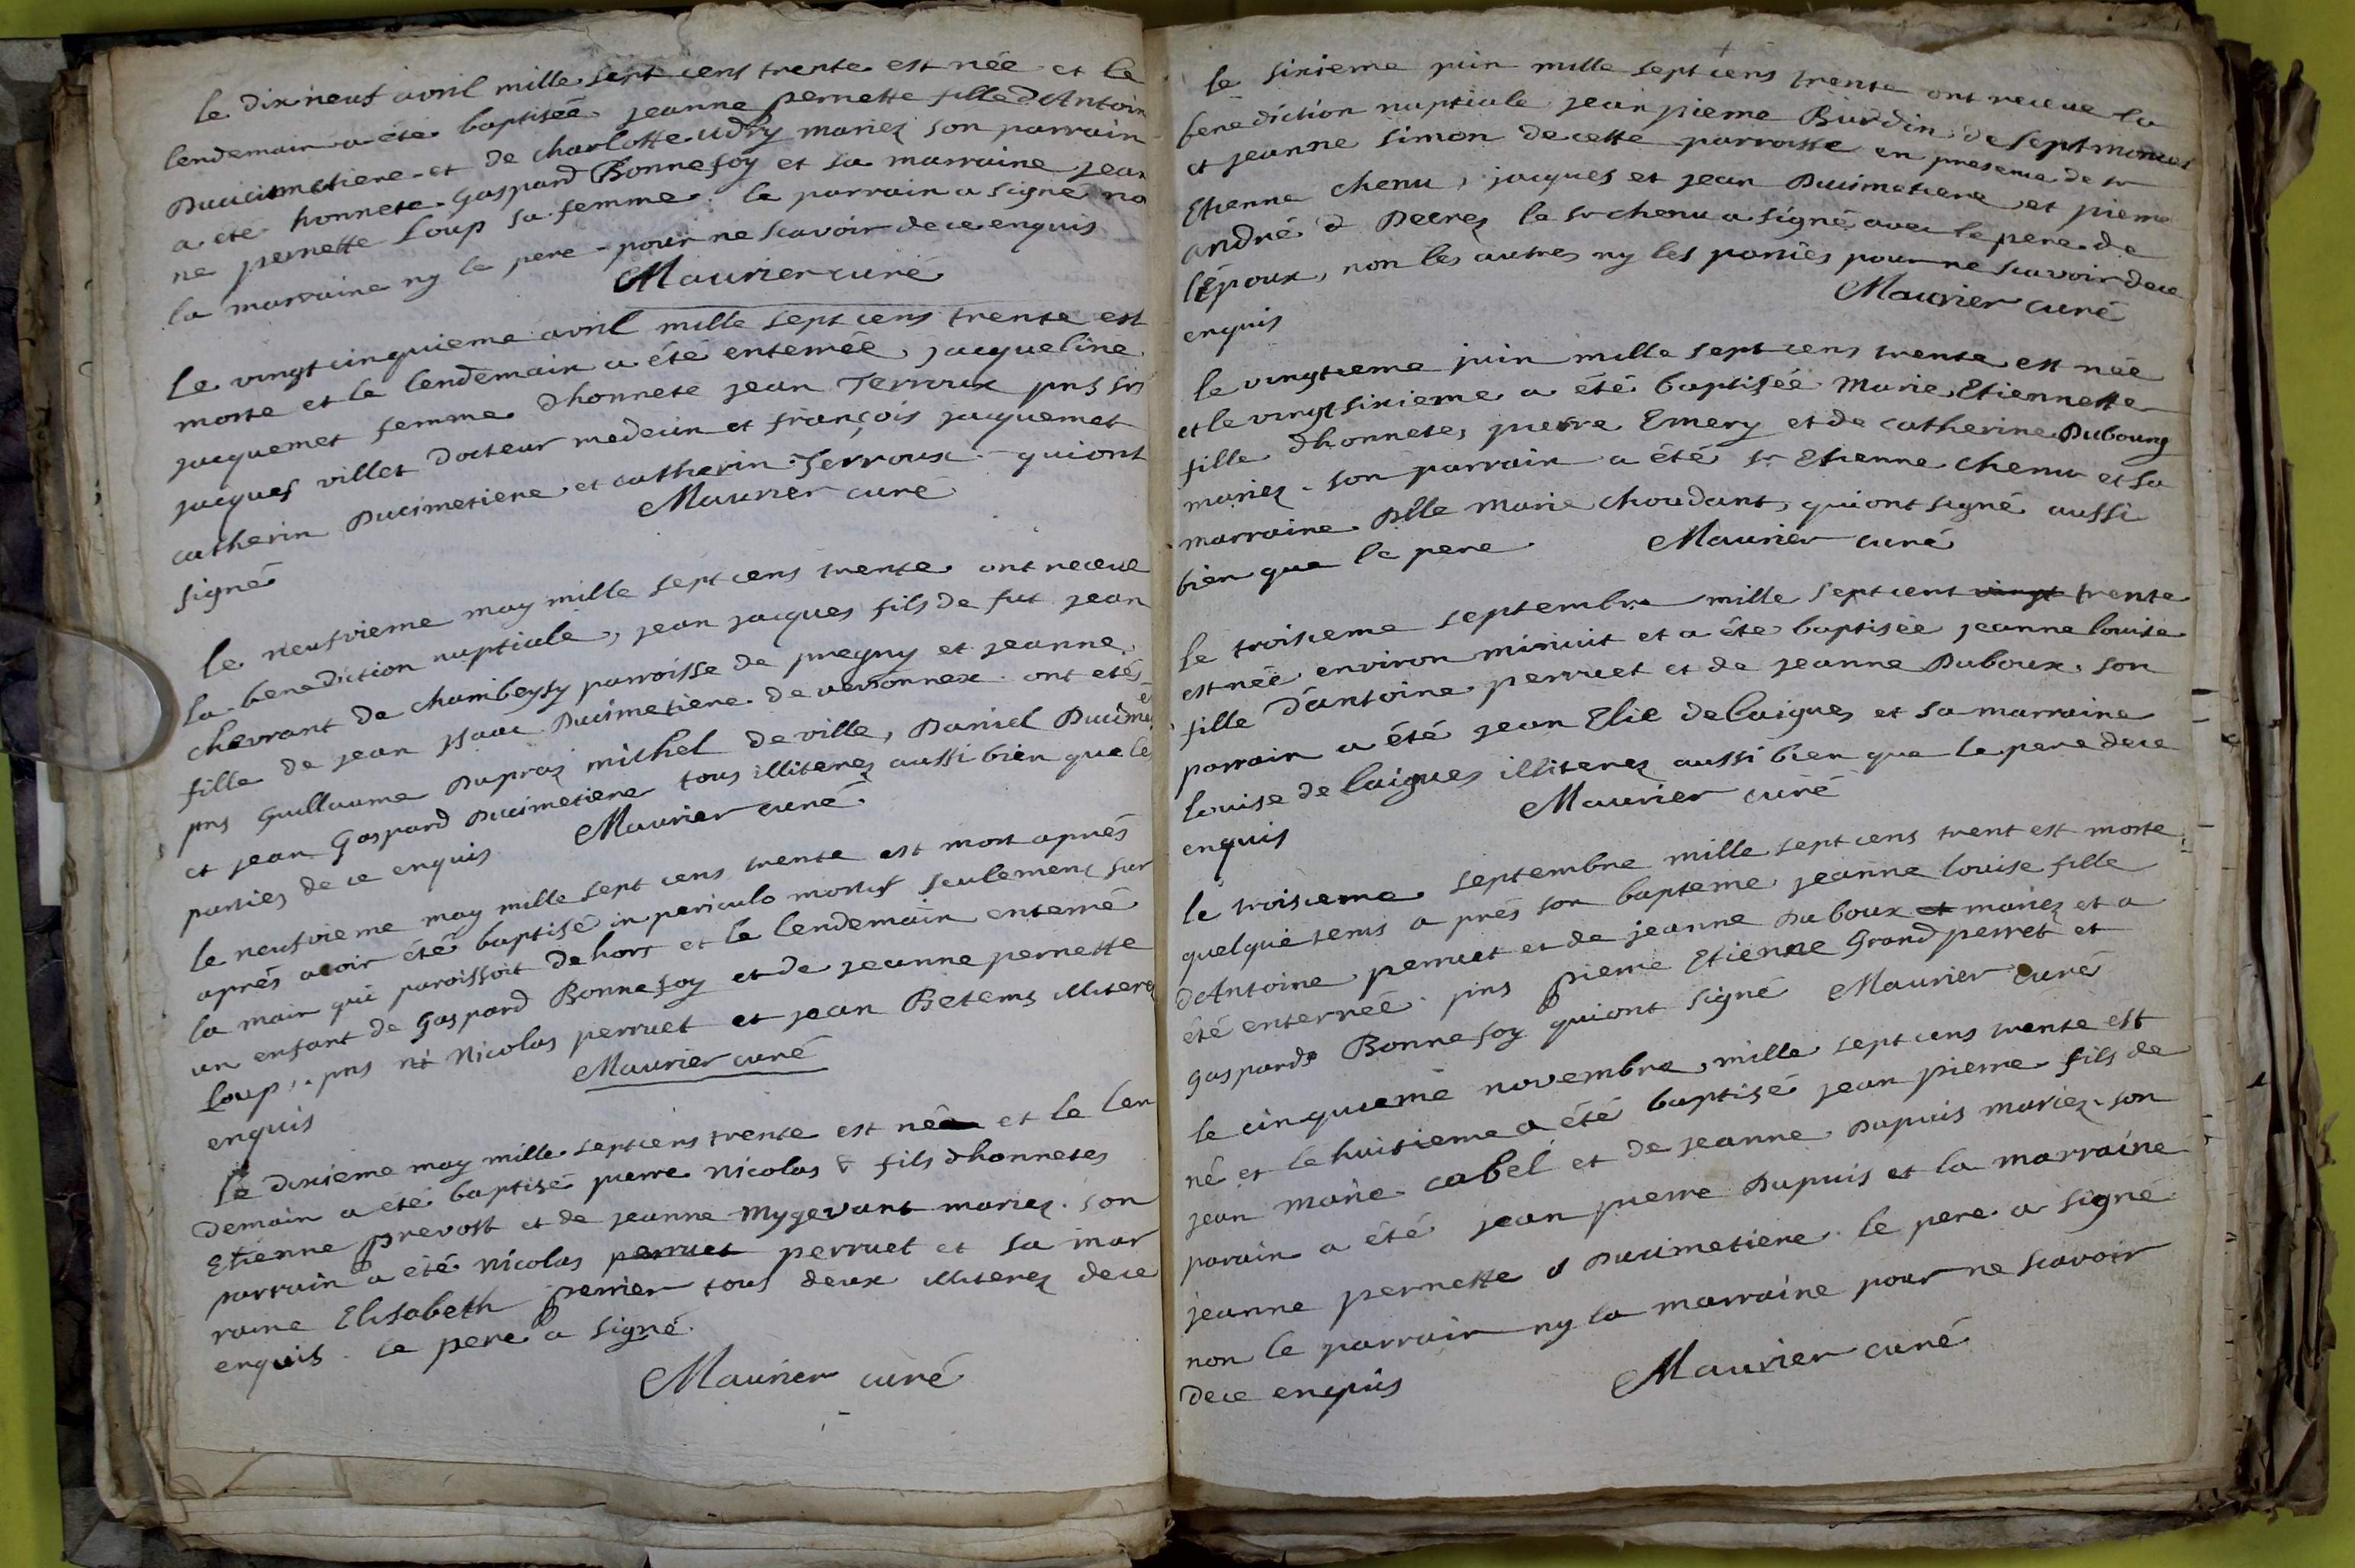 le dixneuf avril mille sept cens trente est née et le
lendemain a été baptisée jeanne pernette fille d'Antoin
Ducimetiere et de charlotte udry mariez son parrain
a été honnete Gaspard Bonnefoy et sa marraine jean
ne pernette Loup sa femme. le parrain a signé no
la marraine ny le pere pour ne scavoir de ce enquis
Maurier curé
Le vingtcinquieme avril mille sept cens trente est
morte et le lendemain a été enterrée, jacqueline
jacquemet femme d'honnete jean Terroux pns srs
jacques villet docteur medecin et françois jacquemet
catherin Ducimetiere et catherin Terroux qui ont
signé
Maurier curé
le neufvieme may mille sept cens trente ont receue
la benediction nuptiale, jean jacques fils de fut jean
chevrant de chambeysy parroisse de pregny et jeanne
fille de jean jsaac Ducimetiere de versonnex. ont etés
pns Guillaume Dupraz michel deville, Daniel Ducime
et jean Gaspard Ducimetiere tous illiterez aussi bien que les
parties de ce enquis
Maurier curé.
le neufvieme may mille sept cens trente est mort aprés
aprés avoir été baptisé in periculo mortis seulement sur
la main qui paroissoit dehors et le lendemain enterré
un enfant de Gaspard Bonnefoy et de jeanne pernette
Loup, pns ni Nicolas perruet et jean Betems illiterez
enquis
Maurier curé
le dixieme may mille septcens trente est né et le len
demain a été baptisé pierre nicolas fils d'honnetes
Etienne prevost et de jeanne mygevant mariez. son
parrain a été nicolas perruet perruet et sa mar
raine Elisabeth perrier tous deux illiterez de ce
enquis. le pere a signé.
Maurier curé
le sixieme juin mille sept cens trente ont receue la
benediction nuptiale jean pierre Burdin de septmoncel
et jeanne simon de cette parroisse en presence de sr
Etienne chenu, jacques et jean Ducimetiere et pierre
andré d Decrez le sr chenu a signé avec le pere de
l'Epoux, non les autres ny les parties pour ne scavoir de ce
enquis
Maurier curé
le vingtieme juin mille sept cens trente est née
et le vingtsixieme a été baptisée Marie Etiennette
fille d'honnetes pierre Emery et de catherine Dubourg
mariez. son parrain a été sr Etienne chenu et sa
marraine Dlle Marie choudant, qui ont signé aussi
bien que le pere
Maurier curé
le troisieme septembre mille sept cent vingt trente
est née environ minuit et a été baptisée jeanne louise
fille d'antoine perruet et de jeanne Duboux. son
parrain a été jean Elie delaigues et sa marraine
Louise delaigues illiterez aussi bien que le pere de ce
enquis
Maurier curé
le troisieme septembre mille sept cens trent est morte
quelque tems aprés son bapteme jeanne louise fille
d'Antoine perruet et de jeanne Duboux et mariez et a
été enterrée. pns pierre Etienne Grandperret et
Gaspard Bonnefoy qui ont signé Maurier curé
le cinquieme novembre, mille sept cens trente est
né et le huitieme a été baptisé jean pierre fils de
jean marie cabel et de jeanne Dupuis mariez. son
parain a été jean pierre Dupuis et la marraine
jeanne pernette Ducimetiere. le pere a signé
non le parrain ny la marraine pour ne scavoir
de ce enquis
Maurier curé